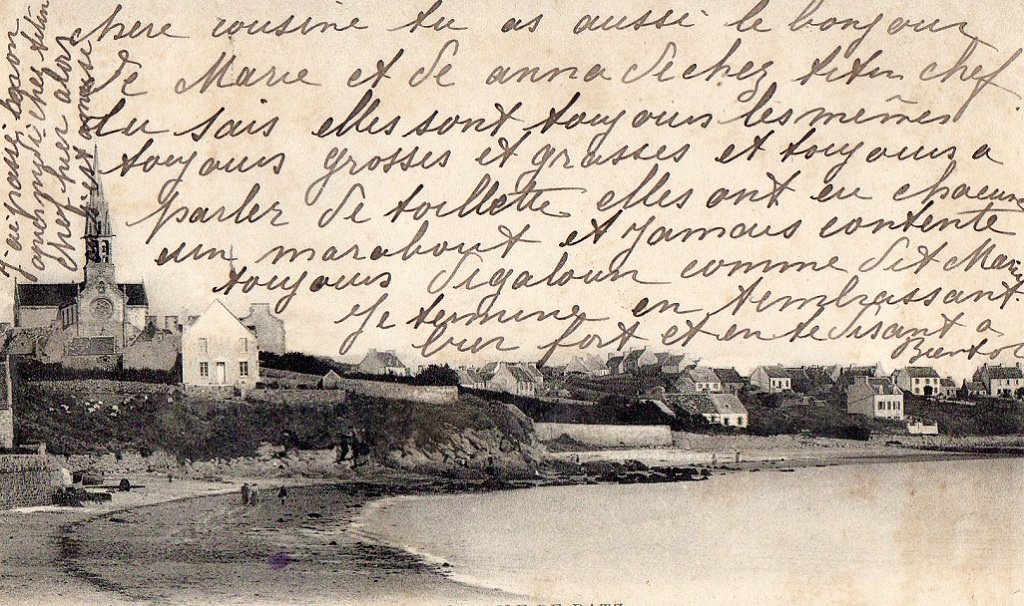 chere cousine tu as aussi le bonjour
de Marie et de anna de chez titin chef
tu sais elles sont toujours les mêmes
toujours grosses et grasses et toujours a
parler de toillette elles ont eu chacune
un marabout et jamais contente
toujours digaloun comme dit Marie
Je termine en t'embrassant
bien fort et en te disant a
Bientot
J-ai passé
apermydi chez titin
chef hier alors
est
ILE DE BATZ